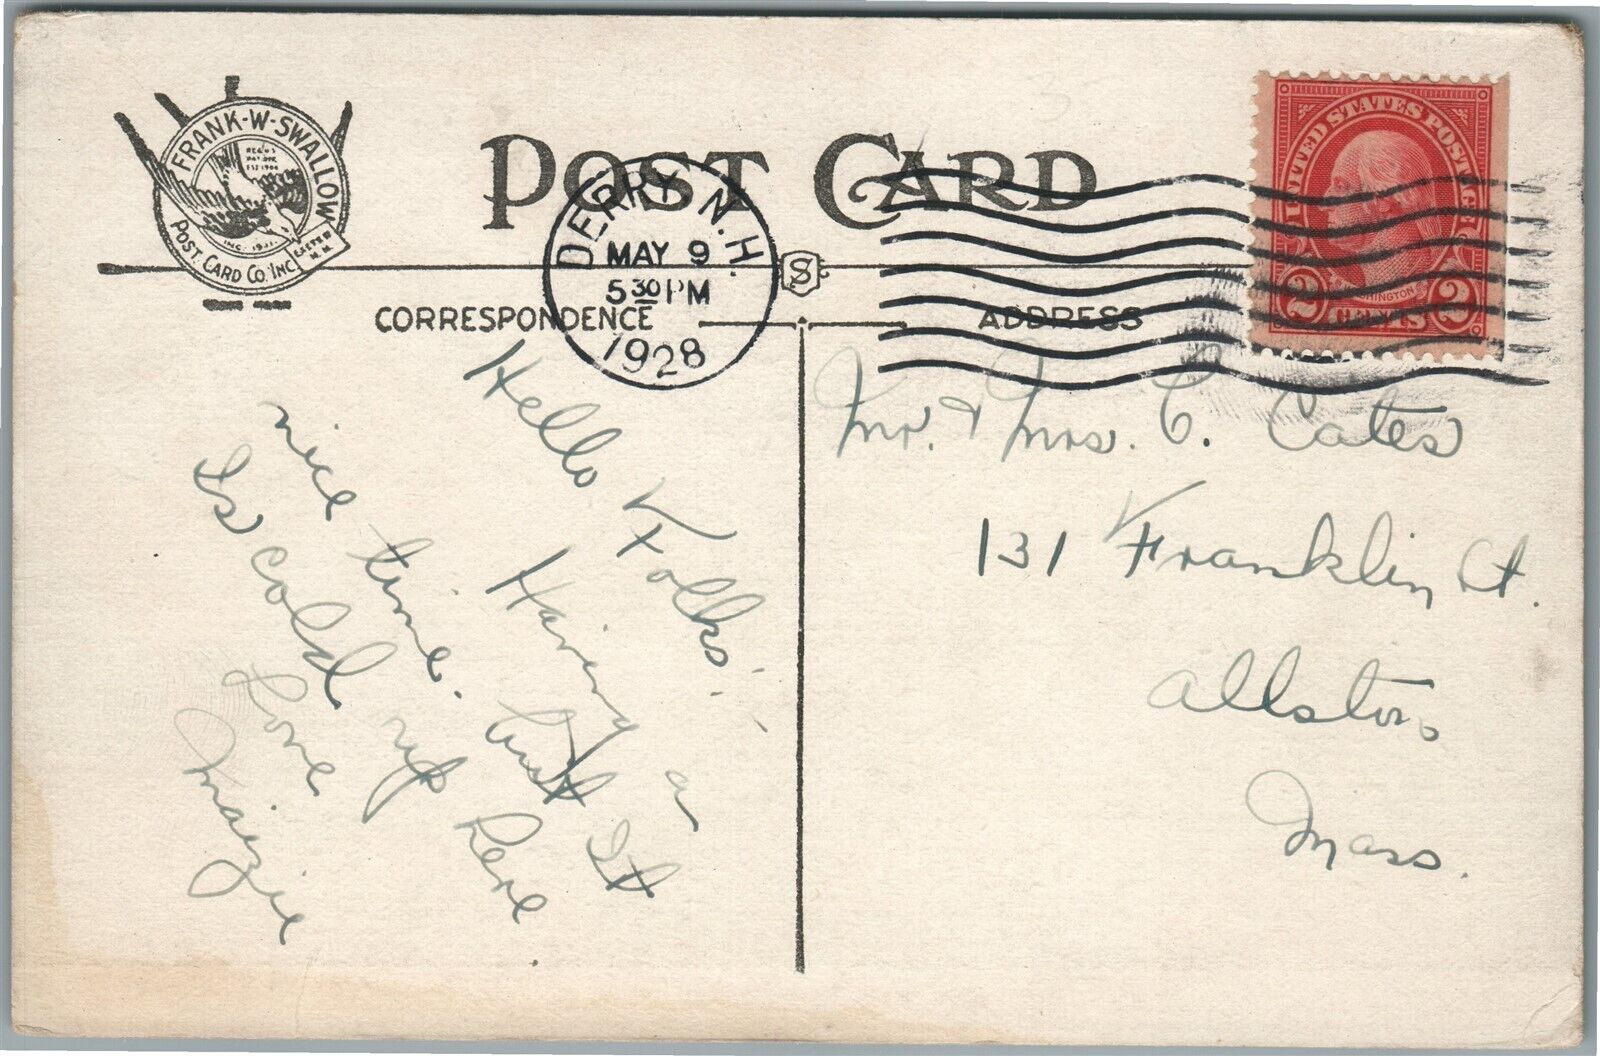 FRANK-W-SWALLOW
POST CARD CO. INC.
EXETER
N.H.
INC. 1931
POST CARD
DERRY N.H.
MAY 9
5 30 PM
1928
S
UNITED STATES POSTAGE
WASHINGTON
2 CENTS 2
CORRESPONDENCE
ADDRESS
Hello Folks!
Having a
nice time. but It
Is cold up here
Love
Maizie
Mr. & Mrs. C. Cates
131 Franklin St.
Allston
Mass.